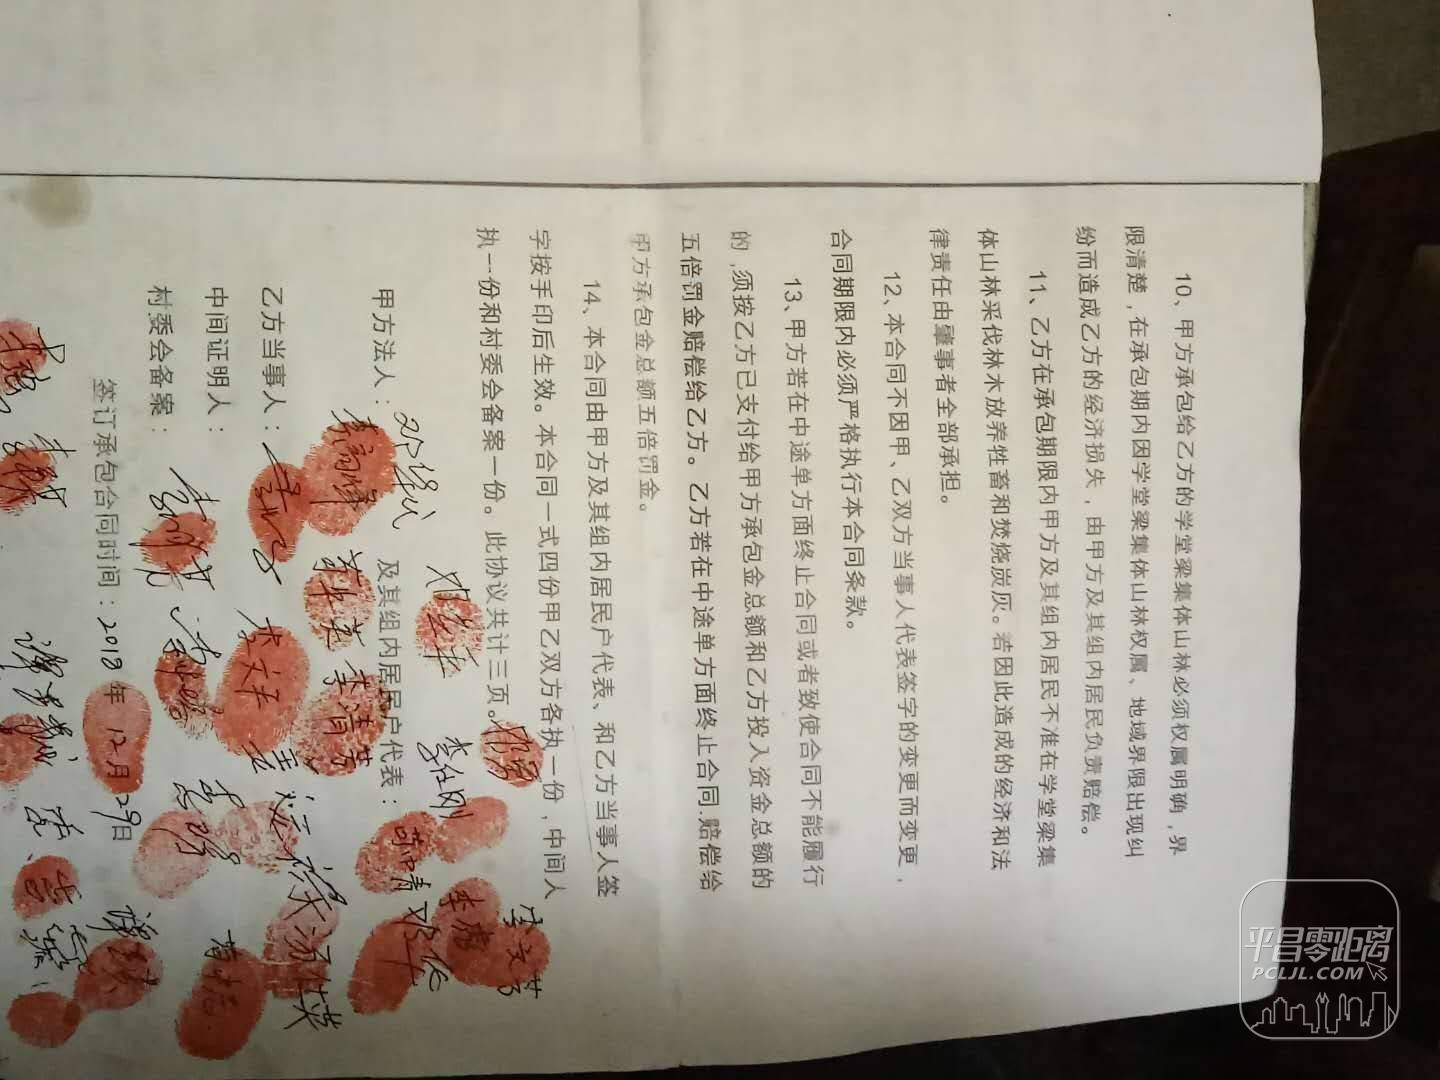 10、甲方承包给乙方的学堂梁集体山林必须权属明确,界
限清楚,在承包期内因学堂梁集体山林权属、地域界限出现纠
纷而造成乙方的经济损失,由甲方及其组内居民负责赔偿。
11、乙方在承包期限内甲方及其组内居民不准在学堂梁集
体山林采伐林木放养牲畜和焚烧炭灰。若因此造成的经济和法
律责任由肇事者全部承担。
12、本合同不因甲、乙双方当事人代表签字的变更而变更,
合同期限内必须严格执行本合同条款。
13、甲方若在中途单方面终止合同或者致使合同不能履行
的,须按乙方已支付给甲方承包金总额和乙方投入资金总额的
五倍罚金赔偿给乙方。乙方若在中途单方面终止合同.赔偿给
甲方承包金总额五倍罚金。
14、本合同由甲方及其组内居民户代表、和乙方当事人签
字按手印后生效。本合同一式四份甲乙双方各执一份,中间人
执一份和村委会备案一份。此协议共计三页。
甲方法人: 及其组内居民户代表:
李清芳
李仕刚
李虎
李文芬
汤仕英
乙方当事人:
中间证明人:
村委会备案:
签订承包合同时间:2018年12月29日
平昌零距离
PCLJL.COM